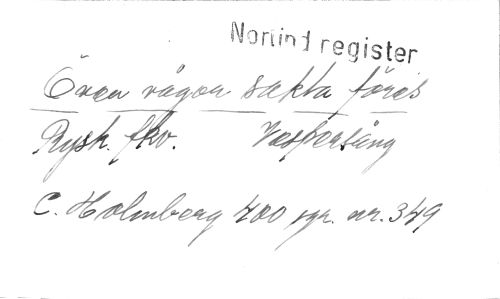 Norlind register
Över vågor sakta föres
Rysk. fkv. Vespersång
C. Holmberg 400 sgr. nr. 349